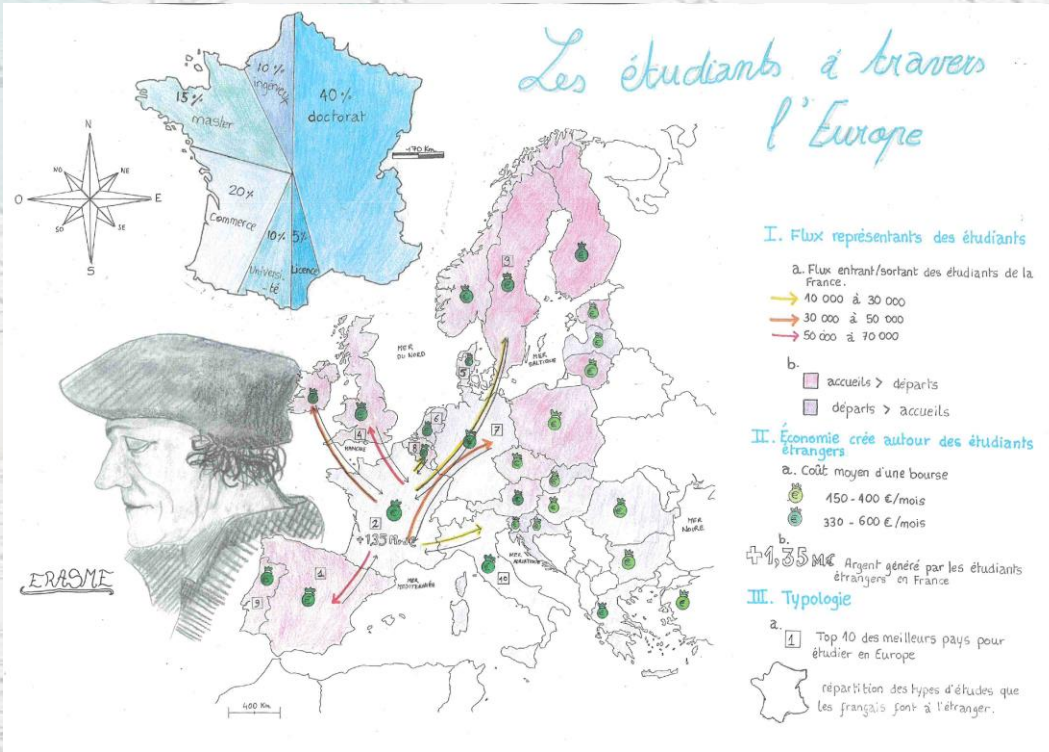 Les étudiants à travers
l'Europe
10%
ingénieur
40%
doctorat
15%
master
20%
Commerce
10%
Universi-
-té
5%
Licence
170 Km
N
NO
NE
O
E
SO
SE
S
ERASME
MER
DU NORD
MER
BALTIQUE
MANCHE
MER
NOIRE
MER
ADRIATIQUE
MER
MEDITERRANÉE
3
5
6
4
8
7
2
1
9
10
400 Km
I. Flux représentants des étudiants
a. Flux entrant/sortant des étudiants de la
France.
10 000 à 30 000
30 000 à 50 000
50 000 à 70 000
b.
accueils > départs
départs > accueils
II. Économie crée autour des étudiants
étrangers
a. Coût moyen d'une bourse
150-400 €/mois
330-600 €/mois
b.
+1,35 M€ Argent généré par les étudiants
étrangers en France
III. Typologie
a.
1 Top 10 des meilleurs pays pour
étudier en Europe
répartition des types d'études que
les français font à l'étranger.